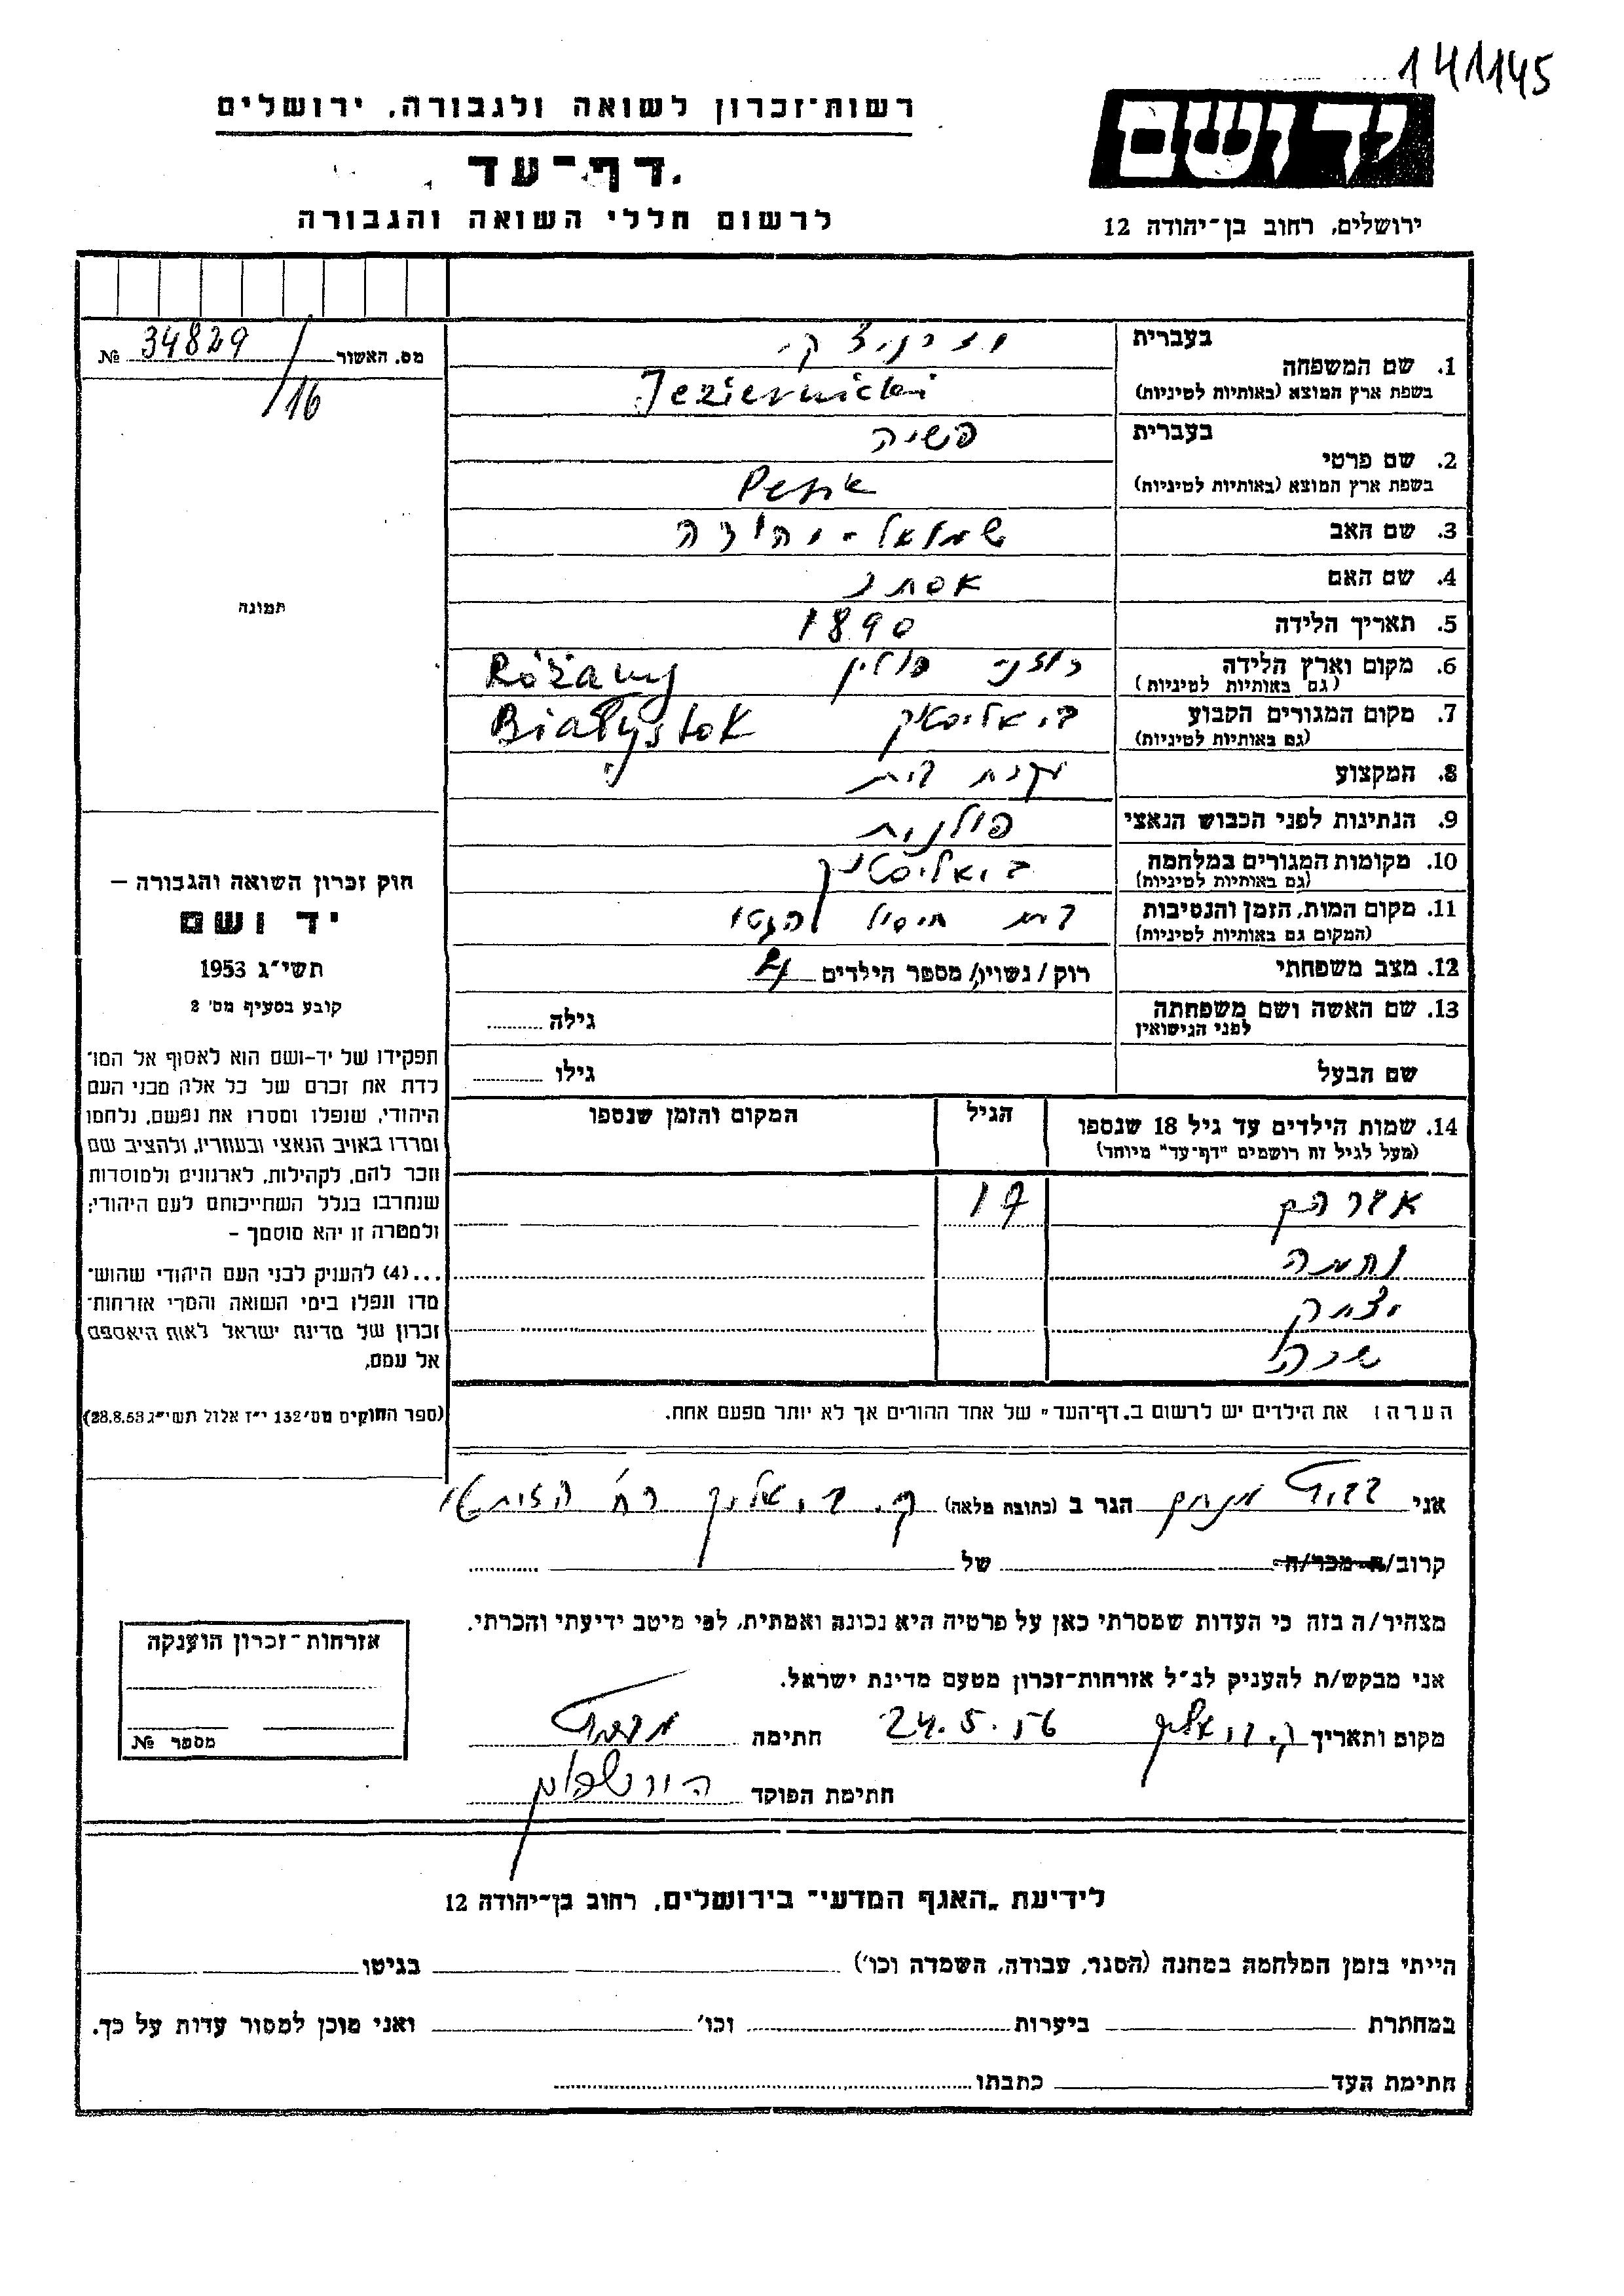 141145
רשות־זכרון לשואה ולגבורה, ירושלים
דף־עד
לרשום חללי השואה והגבורה
יד ושם
ירושלים, רחוב בן־יהודה 12
מס. האשור 34829 №
/16
תמונה
חוק זכרון השואה והגבורה –
יד ושם
תשי"ג 1953
קובע בסעיף מס' 2
תפקידו של יד-ושם הוא לאסוף אל המו־
לדת את זכרם של כל אלה מבני העם
היהודי, שנפלו ומסרו את נפשם, נלחמו
ומרדו באויב הנאצי ובעוזריו, ולהציב שם
וזכר להם, לקהילות, לארגונים ולמוסדות
שנחרבו בגלל השתייכותם לעם היהודי;
ולמטרה זו יהא מוסמך –
...(4) להעניק לבני העם היהודי שהוש־
מדו ונפלו בימי השואה והמרי אזרחות־
זכרון של מדינת ישראל לאות היאספם
אל עמם.
(ספר החוקים מס' 132 י"ז אלול תשי"ג 28.8.53)
בעברית
1. שם המשפחה
בשפת ארץ המוצא (באותיות לטיניות) Jeziernicki
בעברית פשיה
2. שם פרטי
בשפת ארץ המוצא (באותיות לטיניות)
3. שם האב שמואל - יהודה
4. שם האם אסתר
5. תאריך הלידה 1890
6. מקום וארץ הלידה רוזני פולין Różany
(גם באותיות לטיניות)
7. מקום המגורים הקבוע ביאליסטוק Białystok
(גם באותיות לטיניות)
8. המקצוע עקרת בית
9. הנתינות לפני הכבוש הנאצי פולנית
10. מקומות המגורים במלחמה ביאליסטוק
(גם באותיות לטיניות)
11. מקום המות, הזמן והנסיבות בעת חיסול הגטו
(המקום גם באותיות לטיניות)
12. מצב משפחתי רוק / נשוי / מספר הילדים 4
13. שם האשה ושם משפחתה גילה
לפני הנישואין
שם הבעל גילו
14. שמות הילדים עד גיל 18 שנספו הגיל המקום והזמן שנספו
(מעל לגיל זה רושמים "דף־עד" מיוחד)
אברהם 17
נחמה
יצחק
שרה
הערה: את הילדים יש לרשום ב"דף־העד" של אחד ההורים אך לא יותר מפעם אחת.
אני מנחם הגר ב (כתובת מלאה) ק. ביאליק רח'
קרוב/ה מכר/ה של
מצהיר/ה בזה כי העדות שמסרתי כאן על פרטיה היא נכונה ואמתית, לפי מיטב ידיעתי והכרתי.
אני מבקש/ת להעניק לנ"ל אזרחות־זכרון מטעם מדינת ישראל.
מקום ותאריך ק. ביאליק 24.5.56 חתימה
חתימת הפוקד
אזרחות־זכרון הוענקה
מספר №
לידיעת "האגף המדעי" בירושלים, רחוב בן־יהודה 12
הייתי בזמן המלחמה במחנה (הסגר, עבודה, השמדה וכו') בגיטו
במחתרת ביערות וכו' ואני מוכן למסור עדות על כך.
חתימת העד כתבתו